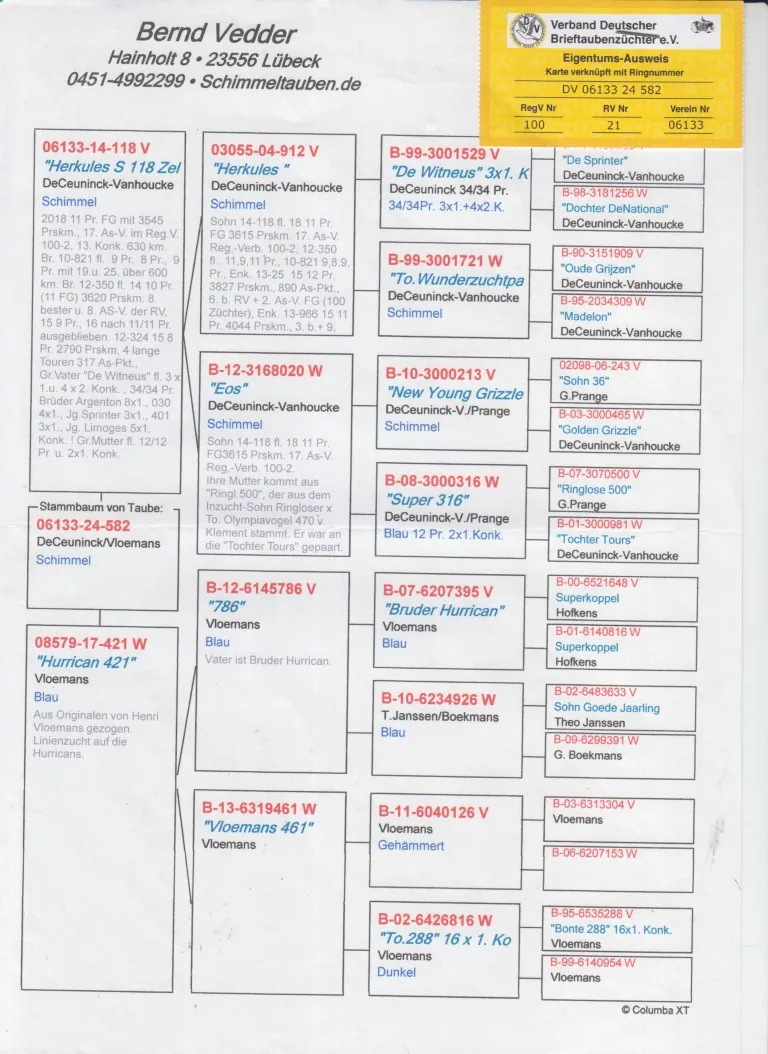 Bernd Vedder
Hainholt 8 • 23556 Lübeck
0451-4992299 • Schimmeltauben.de
Verband Deutscher
Brieftaubenzüchter e.V.
Eigentums-Ausweis
Karte verknüpft mit Ringnummer
DV 06133 24 582
RegV Nr
RV Nr
Verein Nr
100
21
06133
06133-14-118 V
"Herkules S 118 Zel
DeCeuninck-Vanhoucke
Schimmel
2018 11 Pr. FG mit 3545
Prskm., 17. As-V. im Reg.V.
100-2, 13. Konk. 630 km.
Br. 10-821 fl. 9 Pr. 8 Pr., 9
Pr. mit 19.u. 25. über 600
km. Br. 12-350 fl. 14 10 Pr.
(11 FG) 3620 Prskm. 8.
bester u. 8. AS-V. der RV,
15 9 Pr., 16 nach 11/11 Pr.
ausgeblieben. 12-324 15 8
Pr. 2790 Prskm, 4 lange
Touren 317 As-Pkt.,
Gr.Vater "De Witneus" fl. 3 x
1.u. 4 x 2. Konk. , 34/34 Pr.
Brüder Argenton 8x1., 030
4x1., Jg.Sprinter 3x1., 401
3x1., Jg. Limoges 5x1.
Konk. ! Gr.Mutter fl. 12/12
Pr. u. 2x1. Konk.
Stammbaum von Taube:
06133-24-582
DeCeuninck/Vloemans
Schimmel
08579-17-421 W
"Hurrican 421"
Vloemans
Blau
Aus Originalen von Henri
Vloemans gezogen.
Linienzucht auf die
Hurricans.
03055-04-912 V
"Herkules "
DeCeuninck-Vanhoucke
Schimmel
Sohn 14-118 fl. 18 11 Pr.
FG 3615 Prskm. 17. As-V.
Reg.-Verb. 100-2, 12-350
fl. 11,9,11 Pr., 10-821 9,8,9,
Pr., Enk. 13-25 15 12 Pr.
3827 Prskm., 890 As-Pkt.,
6. b. RV + 2. As-V. FG (100
Züchter), Enk. 13-966 15 11
Pr. 4044 Prskm., 3. b.+ 9.
B-12-3168020 W
"Eos"
DeCeuninck-Vanhoucke
Schimmel
Sohn 14-118 fl. 18 11 Pr.
FG3615 Prskm. 17. As-V.
Reg.-Verb. 100-2.
Ihre Mutter kommt aus
"Ringl.500", der aus dem
Inzucht-Sohn Ringloser x
To. Olympiavogel 470 v.
Klement stammt. Er war an
die "Tochter Tours" gepaart.
B-12-6145786 V
"786"
Vloemans
Blau
Vater ist Bruder Hurrican.
B-13-6319461 W
"Vloemans 461"
Vloemans
B-99-3001529 V
"De Witneus" 3x1. K
DeCeuninck 34/34 Pr.
34/34Pr. 3x1.+4x2.K.
B-99-3001721 W
"To.Wunderzuchtpa
DeCeuninck-Vanhoucke
Schimmel
B-10-3000213 V
"New Young Grizzle
DeCeuninck-V./Prange
Schimmel
B-08-3000316 W
"Super 316"
DeCeuninck-V./Prange
Blau 12 Pr. 2x1.Konk.
B-07-6207395 V
"Bruder Hurrican"
Vloemans
Blau
B-10-6234926 W
T.Janssen/Boekmans
Blau
B-11-6040126 V
Vloemans
Gehämmert
B-02-6426816 W
"To.288" 16 x 1. Ko
Vloemans
Dunkel
"De Sprinter"
DeCeuninck-Vanhoucke
B-98-3181256 W
"Dochter DeNational"
DeCeuninck-Vanhoucke
B-90-3151909 V
"Oude Grijzen"
DeCeuninck-Vanhoucke
B-95-2034309 W
"Madelon"
DeCeuninck-Vanhoucke
02098-06-243 V
"Sohn 36"
G.Prange
B-03-3000465 W
"Golden Grizzle"
DeCeuninck-Vanhoucke
B-07-3070500 V
"Ringlose 500"
G.Prange
B-01-3000981 W
"Tochter Tours"
DeCeuninck-Vanhoucke
B-00-6521648 V
Superkoppel
Hofkens
B-01-6140816 W
Superkoppel
Hofkens
B-02-6483633 V
Sohn Goede Jaarling
Theo Janssen
B-09-6299391 W
G. Boekmans
B-03-6313304 V
Vloemans
B-06-6207153 W
B-95-6535288 V
"Bonte 288" 16x1. Konk.
Vloemans
B-99-6140954 W
Vloemans
© Columba XT